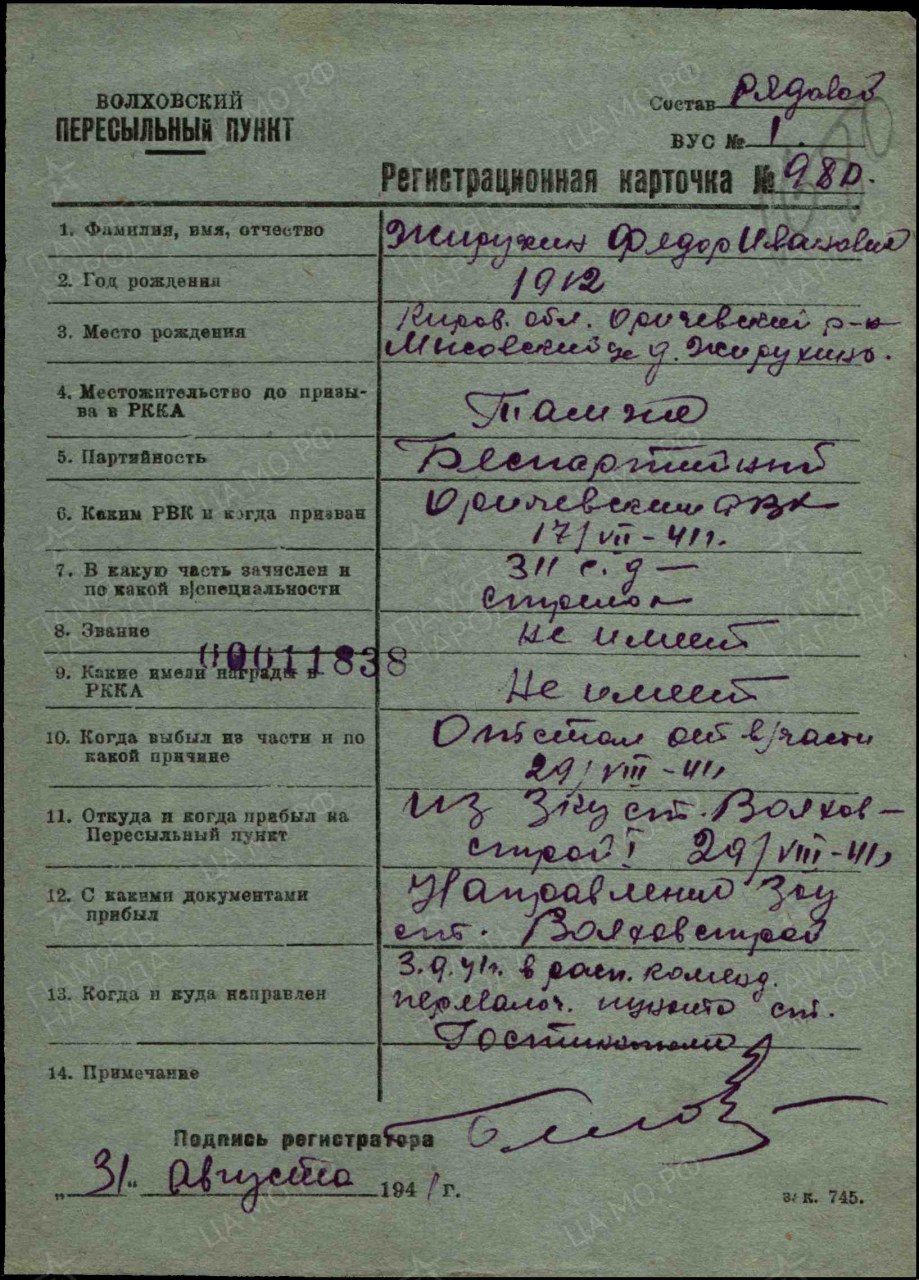 ВОЛХОВСКИЙ
ПЕРЕСЫЛЬНЫЙ ПУНКТ
Состав рядовой
ВУС № 1.
Регистрационная карточка № 980.
1. Фамилия, имя, отчество Жирухин Федор Иванович
2. Год рождения 1912
3. Место рождения Киров. обл. Оричевский р-н
Мысовский с д. Жирухины.
4. Местожительство до призы-
ва в РККА Там же
5. Партийность Беспартийный
6. Каким РВК и когда призван Оричевским РВК
17/VII-41г.
7. В какую часть зачислен и
по какой в/специальности 311 с.д —
стрелок
8. Звание Не имеет
00611838
9. Какие имели награды в
РККА Не имеет
10. Когда выбыл из части и по
какой причине Отстал от в/части
29/VIII-41г
11. Откуда и когда прибыл на
Пересыльный пункт из ст. Волхов-
строй I 29/VIII-41г
12. С какими документами
прибыл Направление
ст. Волховстрой
13. Когда и куда направлен 3.9.41г. в расп. коменд.
перевалоч. пункта ст.
14. Примечание
Подпись регистратора
„31" Августа 1941 г.
зак. 745.
ПАМЯТЬ НАРОДА
ЦА МО.РФ